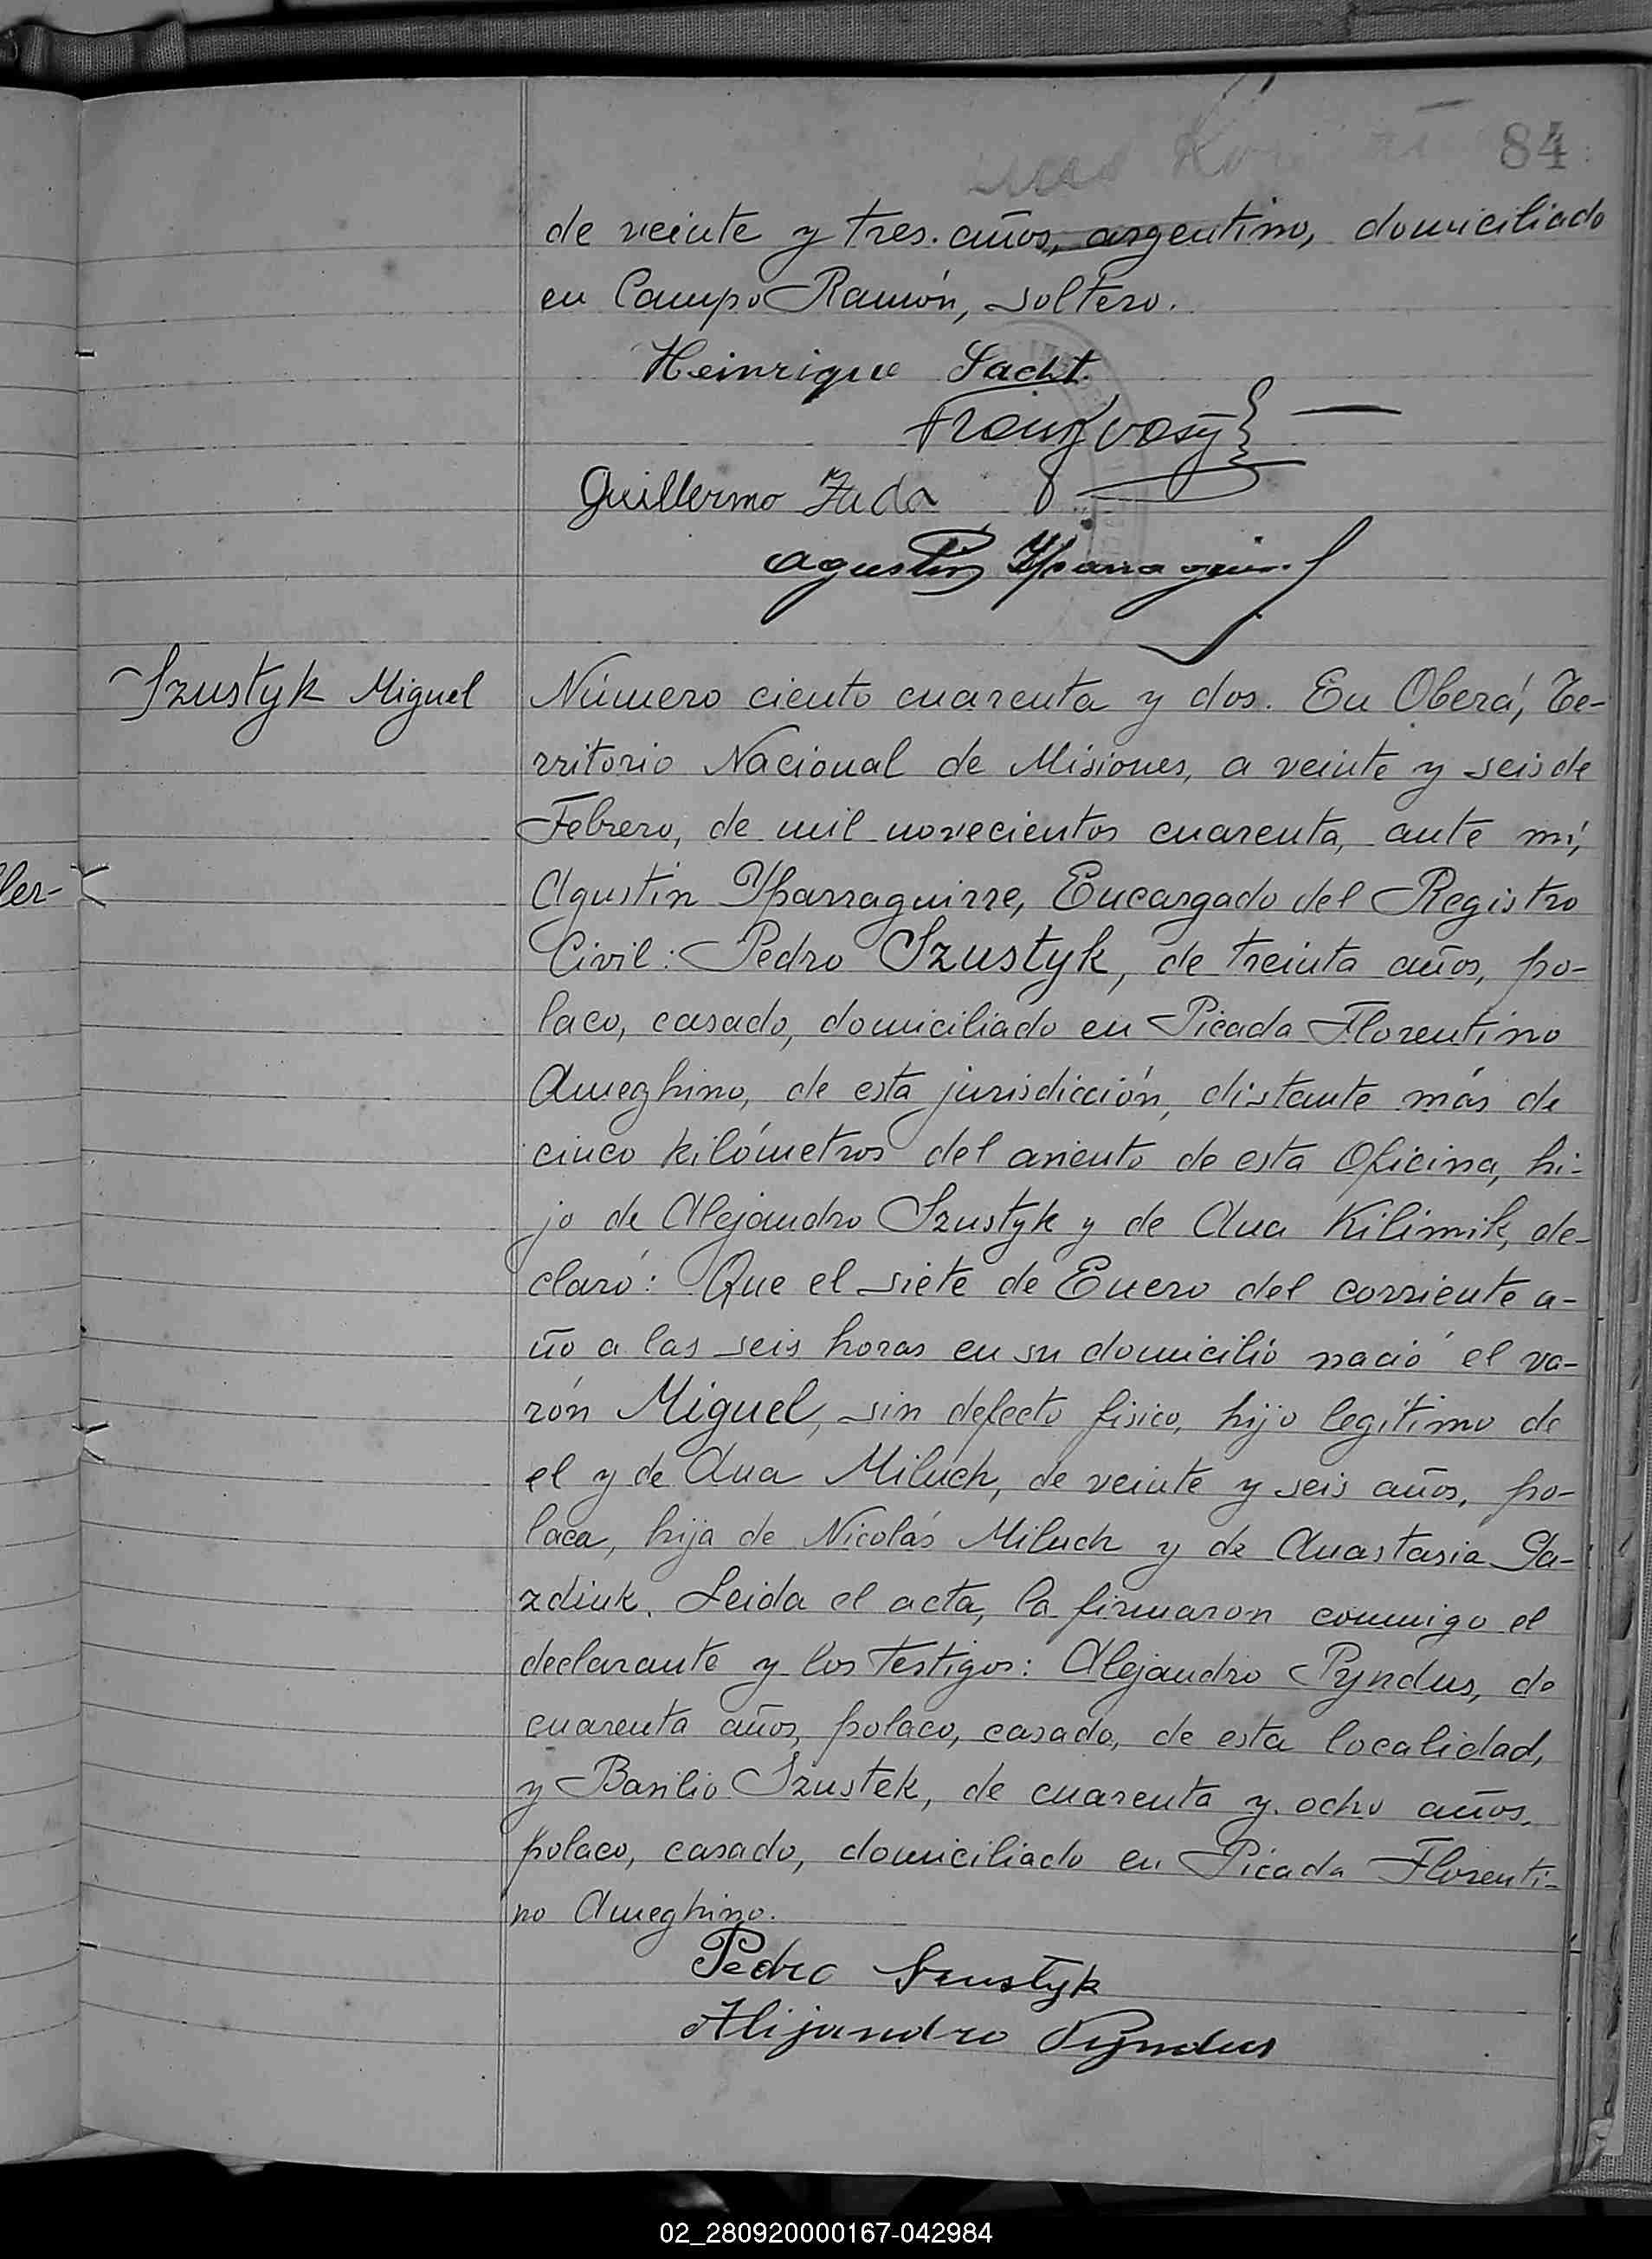 84
de veinte y tres. años, argentino, domiciliado
en Campo Ramón, soltero.
Heinrique Sacht.
Guillermo Zuda
Agustin Yparraguirre
Szustyk Miguel
Número ciento cuarenta y dos. En Oberá, Te-
rritorio Nacional de Misiones, a veinte y seis de
Febrero, de mil novecientos cuarenta, ante mí,
Agustin Yparraguirre, Encargado del Registro
Civil: Pedro Szustyk, de treinta años, po-
laco, casado, domiciliado en Picada Florentino
Ameghino, de esta jurisdicción, distante más de
cinco kilómetros del asiento de esta Oficina, hi-
jo de Alejandro Szustyk y de Ana Kilimik, de-
claró: Que el siete de Enero del corriente a-
ño a las seis horas en su domicilio nació el va-
rón Miguel, sin defecto fisico, hijo legítimo de
el y de Ana Miluch, de veinte y seis años, po-
laca, hija de Nicolás Miluch y de Anastasia Ga-
zdiuk. Leida el acta, la firmaron conmigo el
declarante y los testigos: Alejandro Pyndus, de
cuarenta años, polaco, casado, de esta localidad,
y Basilio Szustek, de cuarenta y ocho años.
polaco, casado, domiciliado en Picada Florenti-
no Ameghino.
Pedro Szustyk
Alijandro Pyndus
ler-
02_280920000167-042984